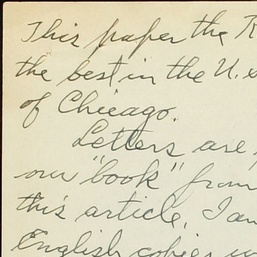 This paper the R
the best in the U.S
of Chicago.
Letters are
our "book" from
this article, I am
English copies